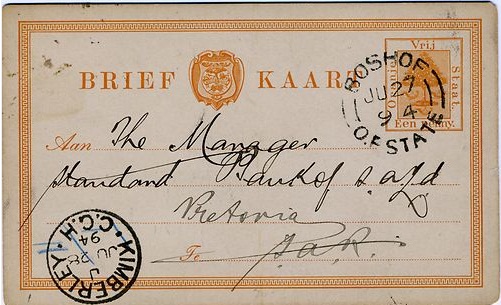 BRIEF KAART
Vrij
Staat.
Een penny.
BOSHOF
JU 27
94
O.F. STATE
Aan The Manager
Standard Bank of S.a. Ld
Pretoria
To
KIMBERLEY
C.G.H.
JU 28
94